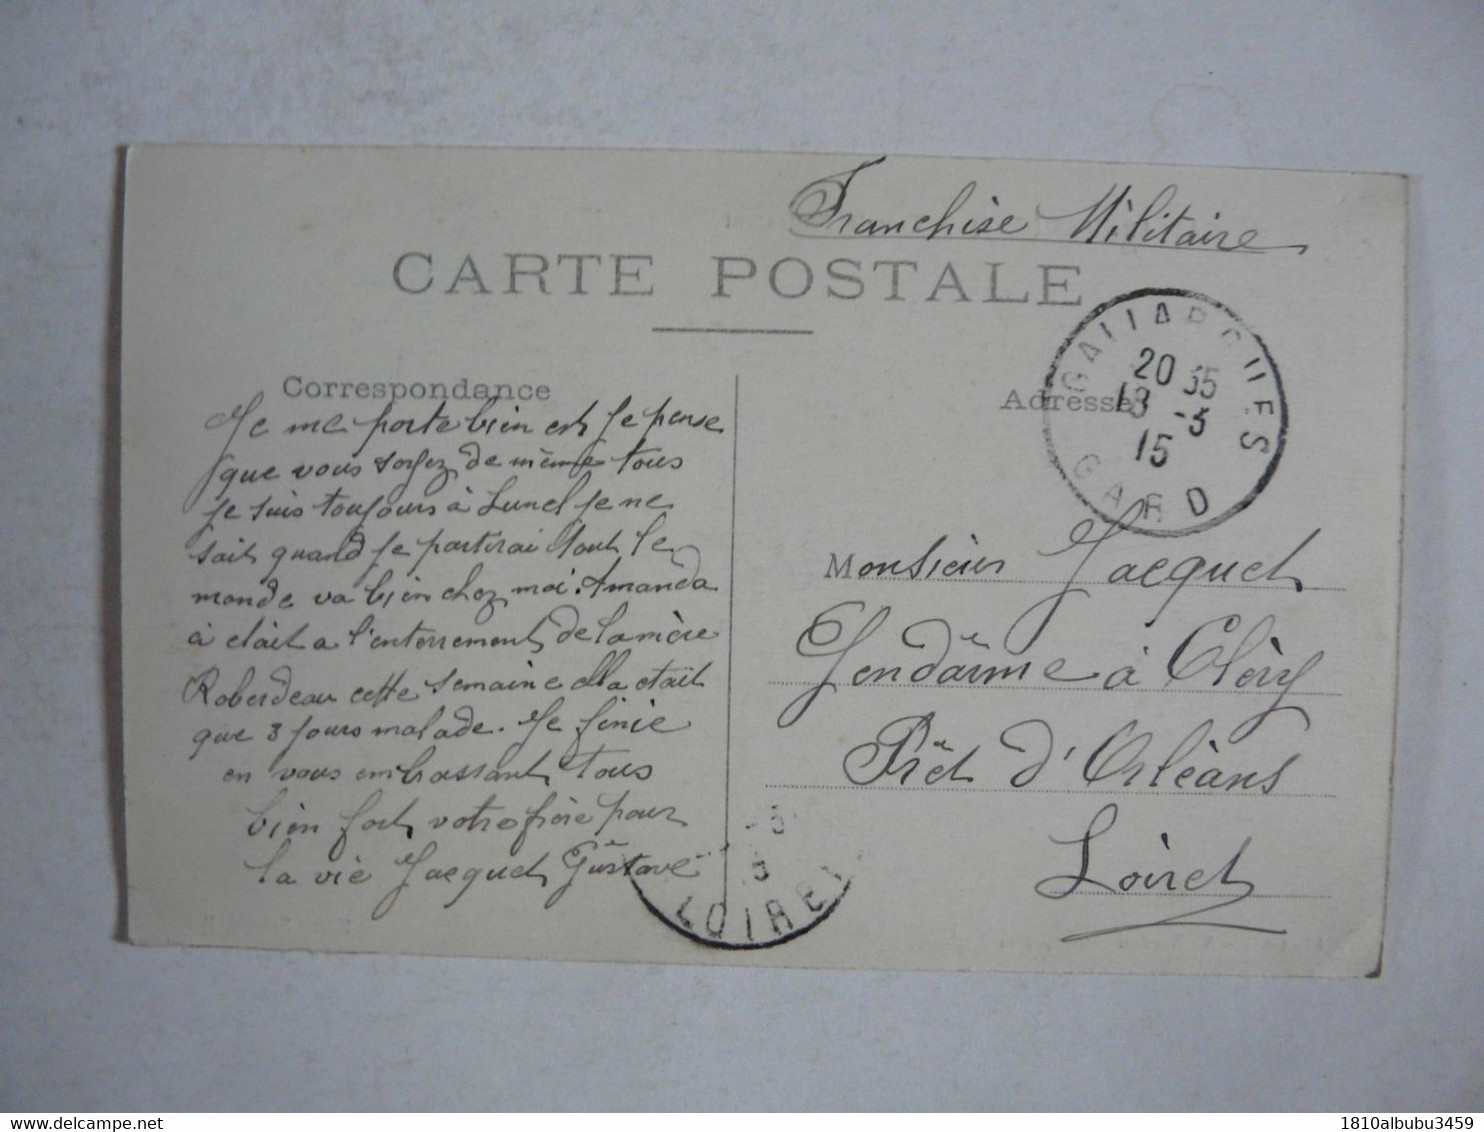 Franchise Militaire
CARTE POSTALE
Correspondance
Je me porte bien est Je pense
que vous soyez de même tous
Je suis toujours à Lunel Je ne
sait quand Je partirai tout le
monde va bien chez moi. Amanda
à était a l'enterrement de la mère
Roberdeau cette semaine ella etait
que 3 Jours malade. Je finie
en vous embrassant tous
bien fort votre frère pour
la vie Jacquet Gustave
Adresse
GALLARGUES
20 35
13 -3
15
GARD
Monsieur Jacquet
Gendârme à Clèry
Prêt d'Orlèans
Loiret
LOIRET
delcampe.net
1810albubu3459